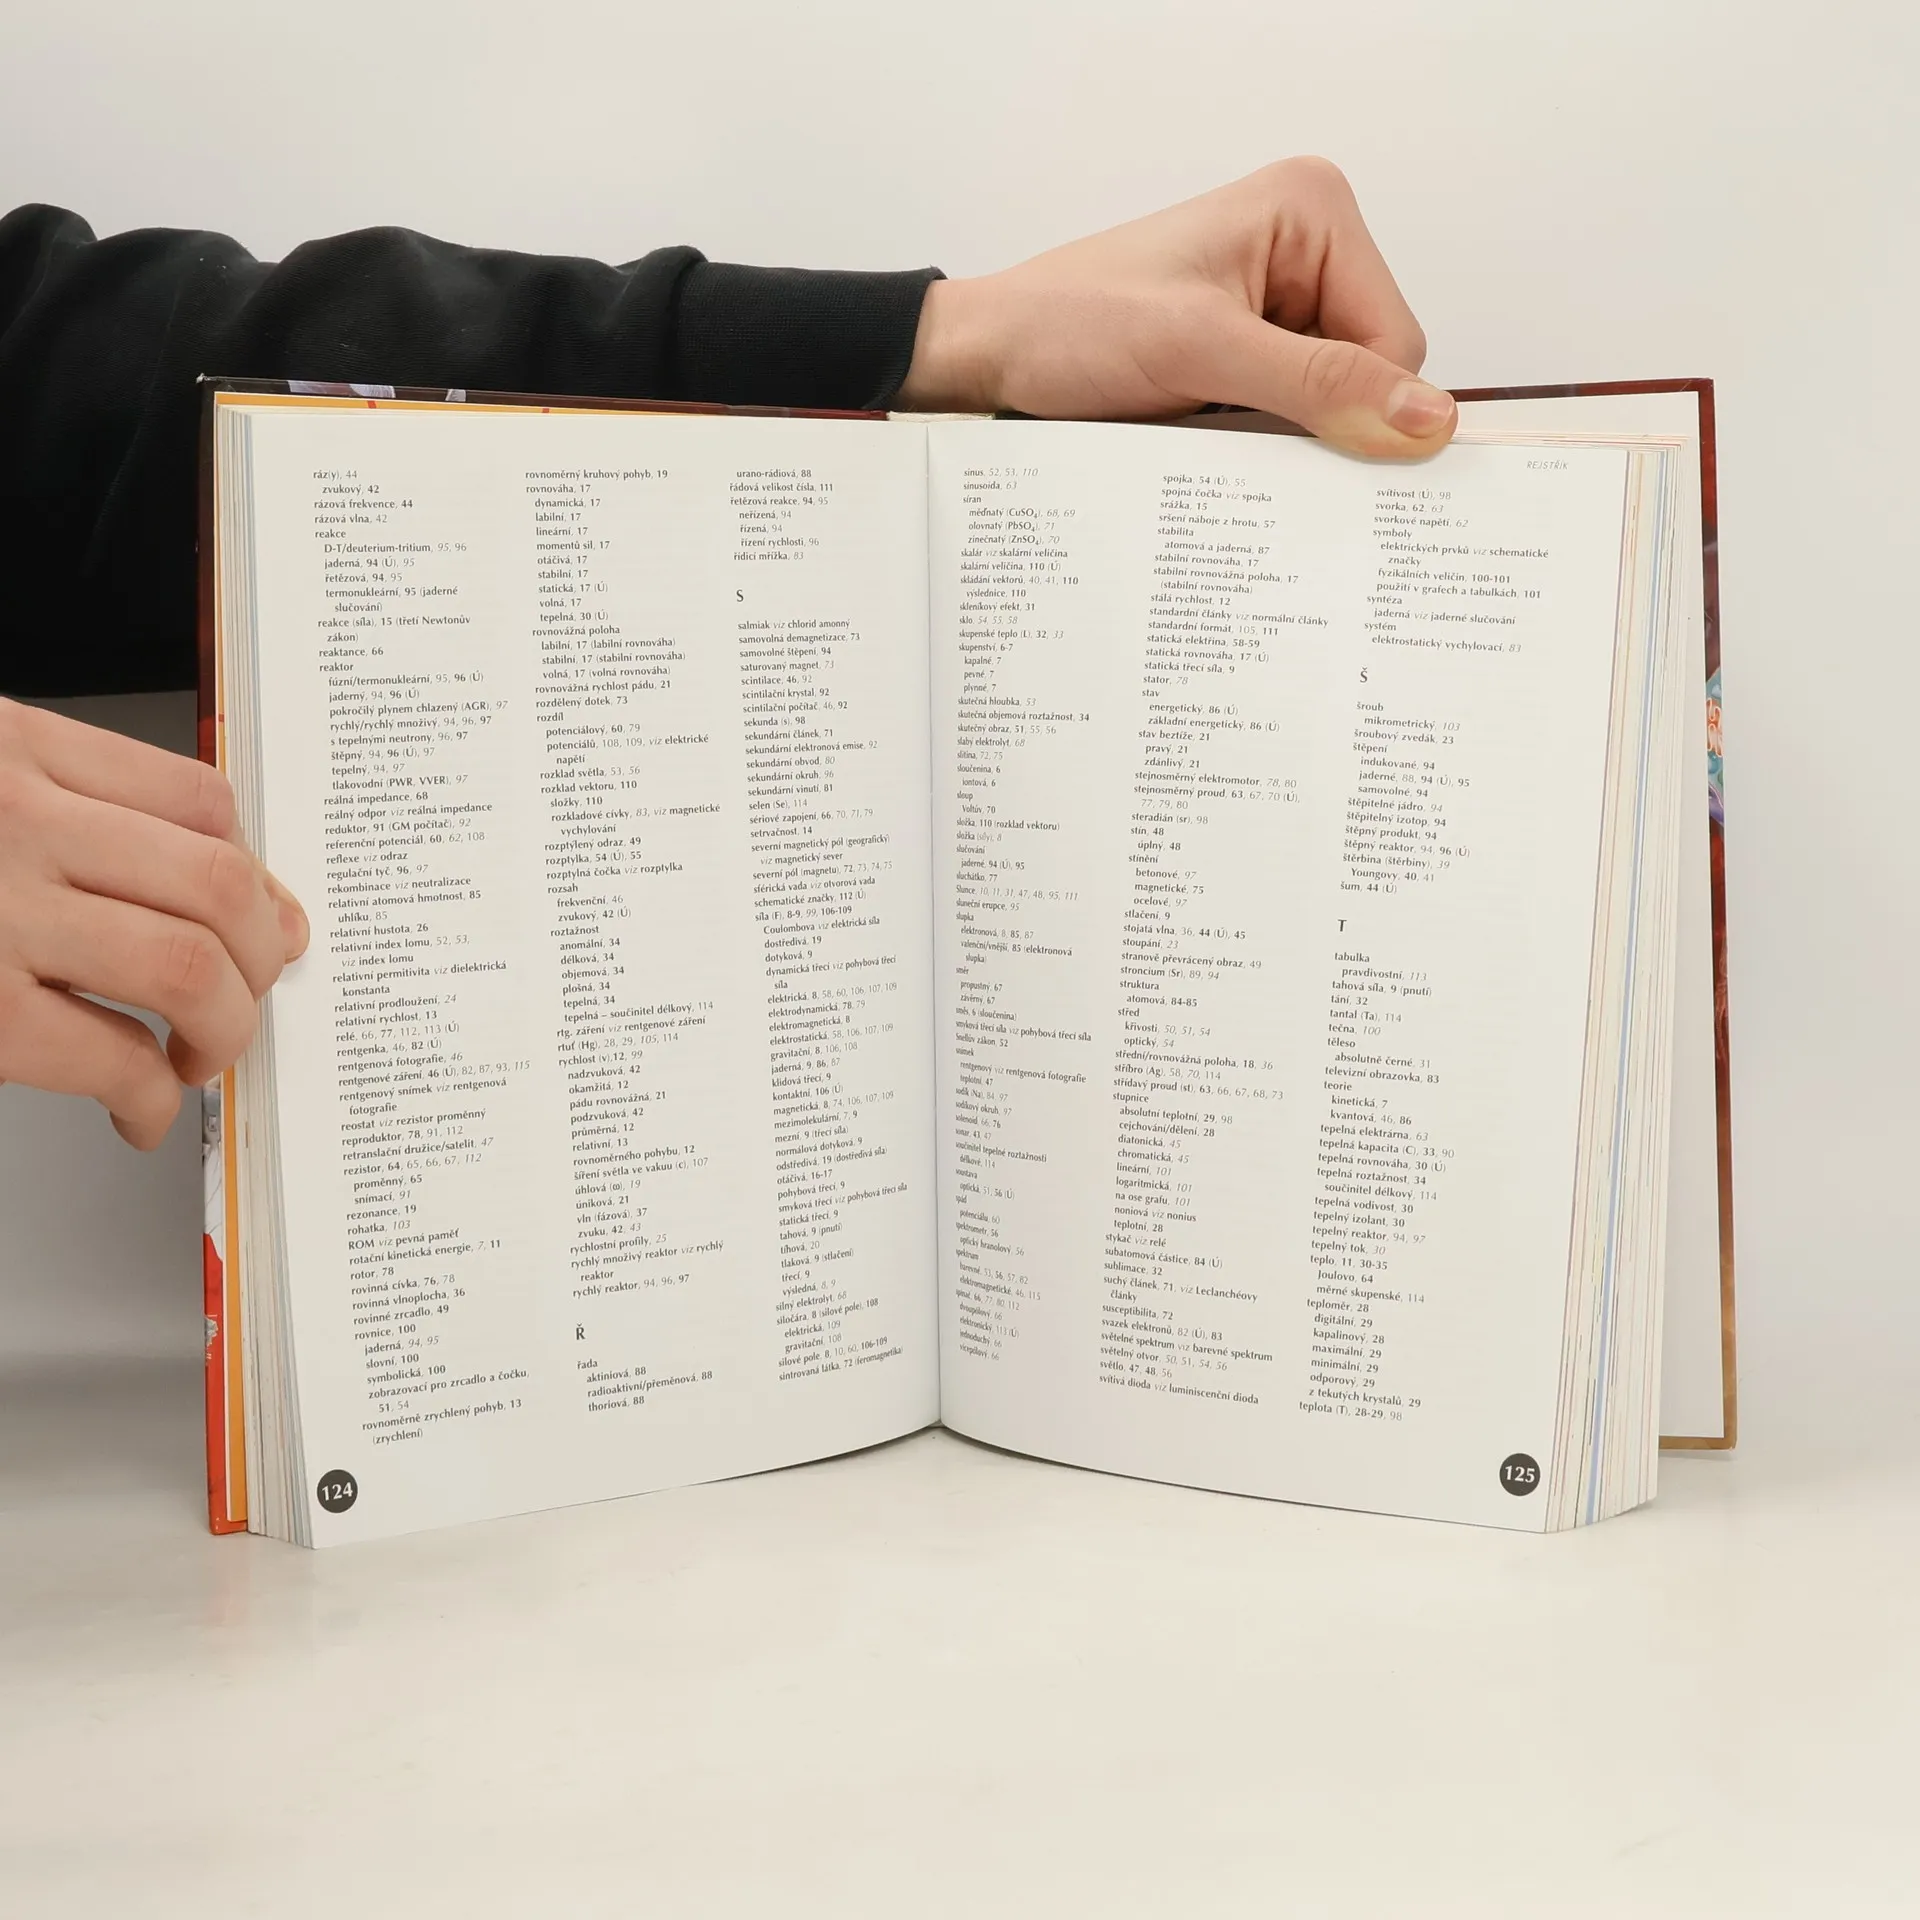 ráz(y), 44
zvukový, 42
rázová frekvence, 44
rázová vlna, 42
reakce
D-T/deuterium-tritium, 95, 96
jaderná, 94 (Ú), 95
řetězová, 94, 95
termonukleární, 95 (jaderné
slučování)
reakce (síla), 15 (třetí Newtonův
zákon)
reaktance, 66
reaktor
fúzní/termonukleární, 95, 96 (Ú)
jaderný, 94, 96 (Ú)
pokročilý plynem chlazený (AGR), 97
rychlý/rychlý množivý, 94, 96, 97
s tepelnými neutrony, 96, 97
štěpný, 94, 96 (Ú), 97
tepelný, 94, 97
tlakovodní (PWR, VVER), 97
reálná impedance, 68
reálný odpor viz reálná impedance
reduktor, 91 (GM počítač), 92
referenční potenciál, 60, 62, 108
reflexe viz odraz
regulační tyč, 96, 97
rekombinace viz neutralizace
relativní atomová hmotnost, 85
uhlíku, 85
relativní hustota, 26
relativní index lomu, 52, 53,
viz index lomu
relativní permitivita viz dielektrická
konstanta
relativní prodloužení, 24
relativní rychlost, 13
relé, 66, 77, 112, 113 (Ú)
rentgenka, 46, 82 (Ú)
rentgenová fotografie, 46
rentgenové záření, 46 (Ú), 82, 87, 93, 115
rentgenový snímek viz rentgenová
fotografie
reostat viz rezistor proměnný
reproduktor, 78, 91, 112
retranslační družice/satelit, 47
rezistor, 64, 65, 66, 67, 112
proměnný, 65
snímací, 91
rezonance, 19
rohatka, 103
ROM viz pevná paměť
rotační kinetická energie, 7, 11
rotor, 78
rovinná cívka, 76, 78
rovinná vlnoplocha, 36
rovinné zrcadlo, 49
rovnice, 100
jaderná, 94, 95
slovní, 100
symbolická, 100
zobrazovací pro zrcadlo a čočku,
51, 54
rovnoměrně zrychlený pohyb, 13
(zrychlení)
rovnoměrný kruhový pohyb, 19
rovnováha, 17
dynamická, 17
labilní, 17
lineární, 17
momentů sil, 17
otáčivá, 17
stabilní, 17
statická, 17 (Ú)
volná, 17
tepelná, 30 (Ú)
rovnovážná poloha
labilní, 17 (labilní rovnováha)
stabilní, 17 (stabilní rovnováha)
volná, 17 (volná rovnováha)
rovnovážná rychlost pádu, 21
rozdělený dotek, 73
rozdíl
potenciálový, 60, 79
potenciálů, 108, 109, viz elektrické
napětí
rozklad světla, 53, 56
rozklad vektoru, 110
složky, 110
rozkladové cívky, 83, viz magnetické
vychylování
rozptýlený odraz, 49
rozptylka, 54 (Ú), 55
rozptylná čočka viz rozptylka
rozsah
frekvenční, 46
zvukový, 42 (Ú)
roztažnost
anomální, 34
délková, 34
objemová, 34
plošná, 34
tepelná, 34
tepelná – součinitel délkový, 114
rtg. záření viz rentgenové záření
rtuť (Hg), 28, 29, 105, 114
rychlost (v),12, 99
nadzvuková, 42
okamžitá, 12
pádu rovnovážná, 21
podzvuková, 42
průměrná, 12
relativní, 13
rovnoměrného pohybu, 12
šíření světla ve vakuu (c), 107
úhlová (ω), 19
úniková, 21
vln (fázová), 37
zvuku, 42, 43
rychlostní profily, 25
rychlý množivý reaktor viz rychlý
reaktor
rychlý reaktor, 94, 96, 97
Ř
řada
aktiniová, 88
radioaktivní/přeměnová, 88
thoriová, 88
urano-rádiová, 88
řádová velikost čísla, 111
řetězová reakce, 94, 95
neřízená, 94
řízená, 94
řízení rychlosti, 96
řídicí mřížka, 83
S
salmiak viz chlorid amonný
samovolná demagnetizace, 73
samovolné štěpení, 94
saturovaný magnet, 73
scintilace, 46, 92
scintilační krystal, 92
scintilační počítač, 46, 92
sekunda (s), 98
sekundární článek, 71
sekundární elektronová emise, 92
sekundární obvod, 80
sekundární okruh, 96
sekundární vinutí, 81
selen (Se), 114
sériové zapojení, 66, 70, 71, 79
setrvačnost, 14
severní magnetický pól (geografický)
viz magnetický sever
severní pól (magnetu), 72, 73, 74, 75
sférická vada viz otvorová vada
schematické značky, 112 (Ú)
síla (F), 8-9, 99, 106-109
Coulombova viz elektrická síla
dostředivá, 19
dotyková, 9
dynamická třecí viz pohybová třecí
síla
elektrická, 8, 58, 60, 106, 107, 109
elektrodynamická, 78, 79
elektromagnetická, 8
elektrostatická, 58, 106, 107, 109
gravitační, 8, 106, 108
jaderná, 9, 86, 87
klidová třecí, 9
kontaktní, 106 (Ú)
magnetická, 8, 74, 106, 107, 109
mezimolekulární, 7, 9
mezní, 9 (třecí síla)
normálová dotyková, 9
odstředivá, 19 (dostředivá síla)
otáčivá, 16-17
pohybová třecí, 9
smyková třecí viz pohybová třecí síla
statická třecí, 9
tahová, 9 (pnutí)
tíhová, 20
tlaková, 9 (stlačení)
třecí, 9
výsledná, 8, 9
silný elektrolyt, 68
siločára, 8 (silové pole), 108
elektrická, 109
gravitační, 108
silové pole, 8, 10, 60, 106-109
sintrovaná látka, 72 (feromagnetika)
124
REJSTŘÍK
sinus, 52, 53, 110
sinusoida, 63
síran
měďnatý (CuSO4), 68, 69
olovnatý (PbSO4), 71
zinečnatý (ZnSO4), 70
skalár viz skalární veličina
skalární veličina, 110 (Ú)
skládání vektorů, 40, 41, 110
výslednice, 110
skleníkový efekt, 31
sklo, 54, 55, 58
skupenské teplo (L), 32, 33
skupenství, 6-7
kapalné, 7
pevné, 7
plynné, 7
skutečná hloubka, 53
skutečná objemová roztažnost, 34
skutečný obraz, 51, 55, 56
slabý elektrolyt, 68
slitina, 72, 75
sloučenina, 6
iontová, 6
sloup
Voltův, 70
složka, 110 (rozklad vektoru)
složka (síly), 8
slučování
jaderné, 94 (Ú), 95
sluchátko, 77
Slunce, 10, 11, 31, 47, 48, 95, 111
sluneční erupce, 95
slupka
elektronová, 8, 85, 87
valenční/vnější, 85 (elektronová
slupka)
směr
propustný, 67
závěrný, 67
směs, 6 (sloučenina)
smyková třecí síla viz pohybová třecí síla
Snellův zákon, 52
snímek
rentgenový viz rentgenová fotografie
teplotní, 47
sodík (Na), 84, 97
sodíkový okruh, 97
solenoid, 66, 76
sonar, 43, 47
součinitel tepelné roztažnosti
délkové, 114
soustava
optická, 51, 56 (Ú)
spád
potenciálu, 60
spektrometr, 56
optický hranolový, 56
spektrum
barevné, 53, 56, 57, 82
elektromagnetické, 46, 115
spínač, 66, 77, 80, 112
dvoupólový, 66
elektronický, 113 (Ú)
jednoduchý, 66
vícepólový, 66
spojka, 54 (Ú), 55
spojná čočka viz spojka
srážka, 15
sršení náboje z hrotu, 57
stabilita
atomová a jaderná, 87
stabilní rovnováha, 17
stabilní rovnovážná poloha, 17
(stabilní rovnováha)
stálá rychlost, 12
standardní články viz normální články
standardní formát, 105, 111
statická elektřina, 58-59
statická rovnováha, 17 (Ú)
statická třecí síla, 9
stator, 78
stav
energetický, 86 (Ú)
základní energetický, 86 (Ú)
stav beztíže, 21
pravý, 21
zdánlivý, 21
stejnosměrný elektromotor, 78, 80
stejnosměrný proud, 63, 67, 70 (Ú),
77, 79, 80
steradián (sr), 98
stín, 48
úplný, 48
stínění
betonové, 97
magnetické, 75
ocelové, 97
stlačení, 9
stojatá vlna, 36, 44 (Ú), 45
stoupání, 23
stranově převrácený obraz, 49
stroncium (Sr), 89, 94
struktura
atomová, 84-85
střed
křivosti, 50, 51, 54
optický, 54
střední/rovnovážná poloha, 18, 36
stříbro (Ag), 58, 70, 114
střídavý proud (st), 63, 66, 67, 68, 73
stupnice
absolutní teplotní, 29, 98
cejchování/dělení, 28
diatonická, 45
chromatická, 45
lineární, 101
logaritmická, 101
na ose grafu, 101
noniová viz nonius
teplotní, 28
stykač viz relé
subatomová částice, 84 (Ú)
sublimace, 32
suchý článek, 71, viz Leclanchéovy
články
susceptibilita, 72
svazek elektronů, 82 (Ú), 83
světelné spektrum viz barevné spektrum
světelný otvor, 50, 51, 54, 56
světlo, 47, 48, 56
svítivá dioda viz luminiscenční dioda
svítivost (Ú), 98
svorka, 62, 63
svorkové napětí, 62
symboly
elektrických prvků viz schematické
značky
fyzikálních veličin, 100-101
použití v grafech a tabulkách, 101
syntéza
jaderná viz jaderné slučování
systém
elektrostatický vychylovací, 83
Š
šroub
mikrometrický, 103
šroubový zvedák, 23
štěpení
indukované, 94
jaderné, 88, 94 (Ú), 95
samovolné, 94
štěpitelné jádro, 94
štěpitelný izotop, 94
štěpný produkt, 94
štěpný reaktor, 94, 96 (Ú)
štěrbina (štěrbiny), 39
Youngovy, 40, 41
šum, 44 (Ú)
T
tabulka
pravdivostní, 113
tahová síla, 9 (pnutí)
tání, 32
tantal (Ta), 114
tečna, 100
těleso
absolutně černé, 31
televizní obrazovka, 83
teorie
kinetická, 7
kvantová, 46, 86
tepelná elektrárna, 63
tepelná kapacita (C), 33, 90
tepelná rovnováha, 30 (Ú)
tepelná roztažnost, 34
součinitel délkový, 114
tepelná vodivost, 30
tepelný izolant, 30
tepelný reaktor, 94, 97
tepelný tok, 30
teplo, 11, 30-35
Joulovo, 64
měrné skupenské, 114
teploměr, 28
digitální, 29
kapalinový, 28
maximální, 29
minimální, 29
odporový, 29
z tekutých krystalů, 29
teplota (T), 28-29, 98
125